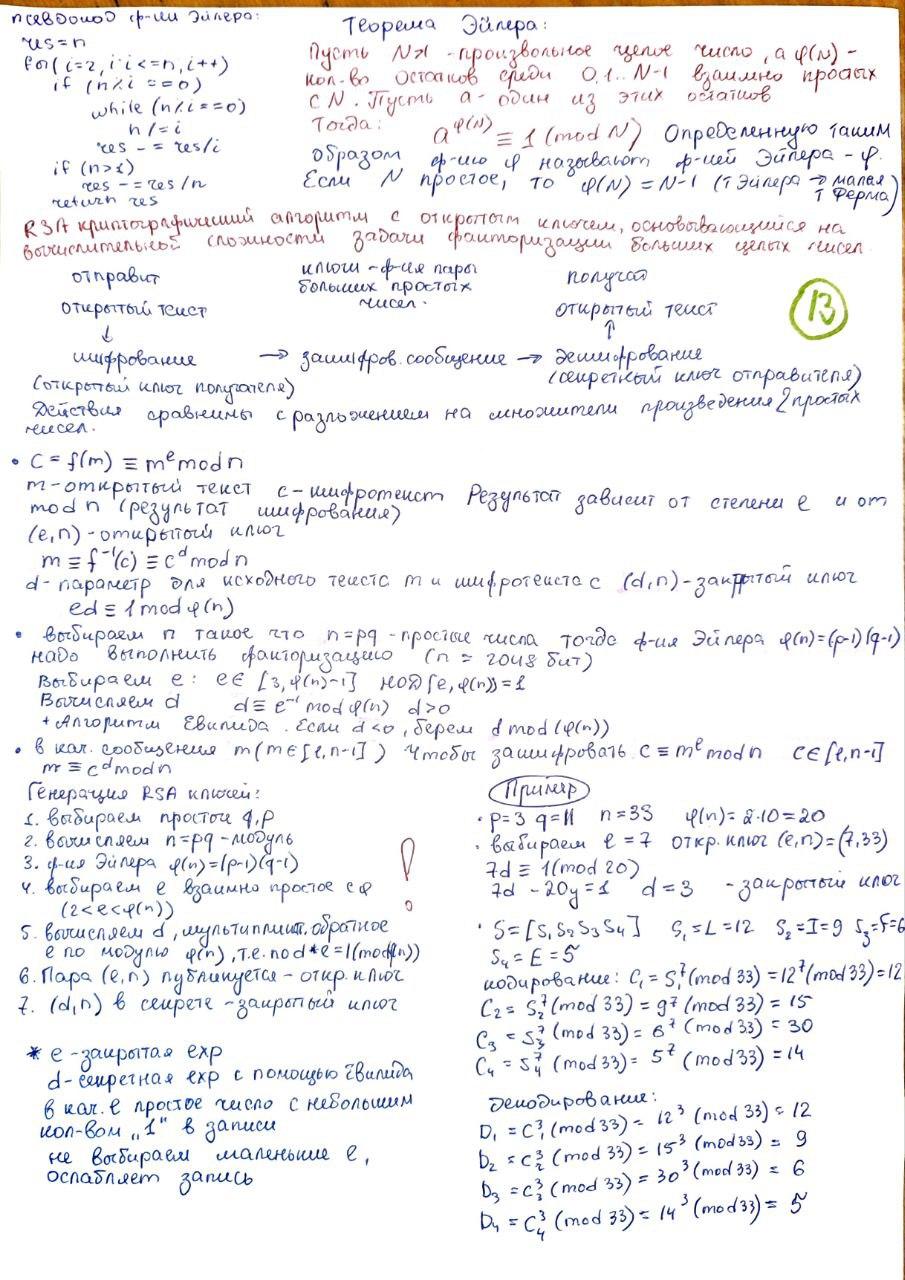 псевдокод ф-ии Эйлера:
res = n
for(i=2, i*i<=n, i++)
if (n%i == 0)
while (n%i==0)
n /= i
res -= res/i
if (n>1)
res -= res/n
return res
Теорема Эйлера:
Пусть N>1 - произвольное целое число, а φ(N) -
кол-во остатков среди 0,1..N-1 взаимно простых
с N. Пусть а - один из этих остатков
Тогда: a^φ(N) ≡ 1 (mod N) Определенную таким
образом ф-ию φ называют ф-ией Эйлера - φ.
Если N простое, то φ(N) = N-1 (т Эйлера → малая
т Ферма)
RSA криптографический алгоритм с открытым ключем, основывающийся на
вычислительной сложности задачи факторизации больших целых чисел.
отправит
открытый текст
↓
шифрование
(открытый ключ получателя)
ключи - ф-ия пары
больших простых
чисел.
→ зашифров. сообщение →
получат
открытый текст
↑
дешифрование
(секретный ключ отправителя)
13
Действия сравнимы с разложением на множители произведения 2 простых
чисел.
• C = f(m) ≡ m^e mod n
m - открытый текст c - шифротекст Результат зависит от степени e и от
mod n (результат шифрования)
(e,n) - открытый ключ
m ≡ f⁻¹(c) ≡ c^d mod n
d - параметр для исходного текста m и шифротекста c (d,n) - закрытый ключ
ed ≡ 1 mod φ(n)
• выбираем n такое что n=pq - простые числа тогда ф-ия Эйлера φ(n)=(p-1)(q-1)
надо выполнить факторизацию (n ≈ 2048 бит)
Выбираем e: e∈[3, φ(n)-1] НОД(e, φ(n))=1
Вычисляем d d ≡ e⁻¹ mod φ(n) d>0
+ Алгоритм Евклида. Если d<0, берем d mod (φ(n))
• в кач. сообщения m (m∈[1,n-1]) Чтобы зашифровать c ≡ m^e mod n c∈[1,n-1]
m ≡ c^d mod n
Генерация RSA ключей:
1. выбираем простые q,p
2. вычисляем n=pq - модуль
3. ф-ия Эйлера φ(n)=(p-1)(q-1)
4. выбираем e взаимно простое с φ
(2<e<φ(n))
5. вычисляем d, мультиплик. обратное
e по модулю φ(n), т.е. d*e=1(mod φ(n))
6. Пара (e,n) публикуется - откр. ключ
7. (d,n) в секрете - закрытый ключ
!
* e - закрытая exp
d - секретная exp с помощью Евклида
в кач. e простое число с небольшим
кол-вом „1" в записи
не выбираем маленькие e,
ослабляет запись
Пример
• p=3 q=11 n=33 φ(n)=2·10=20
• выбираем e=7 откр. ключ (e,n)=(7,33)
7d ≡ 1(mod 20)
7d - 20y = 1 d=3 - закрытый ключ
• S=[S₁S₂S₃S₄] S₁=L=12 S₂=I=9 S₃=F=6
S₄=E=5
кодирование: C₁=S₁⁷(mod 33)=12⁷(mod 33)=12
C₂=S₂⁷(mod 33)=9⁷(mod 33)=15
C₃=S₃⁷(mod 33)=6⁷(mod 33)=30
C₄=S₄⁷(mod 33)=5⁷(mod 33)=14
Декодирование:
D₁=C₁³(mod 33)=12³(mod 33)=12
D₂=C₂³(mod 33)=15³(mod 33)=9
D₃=C₃³(mod 33)=30³(mod 33)=6
D₄=C₄³(mod 33)=14³(mod 33)=5